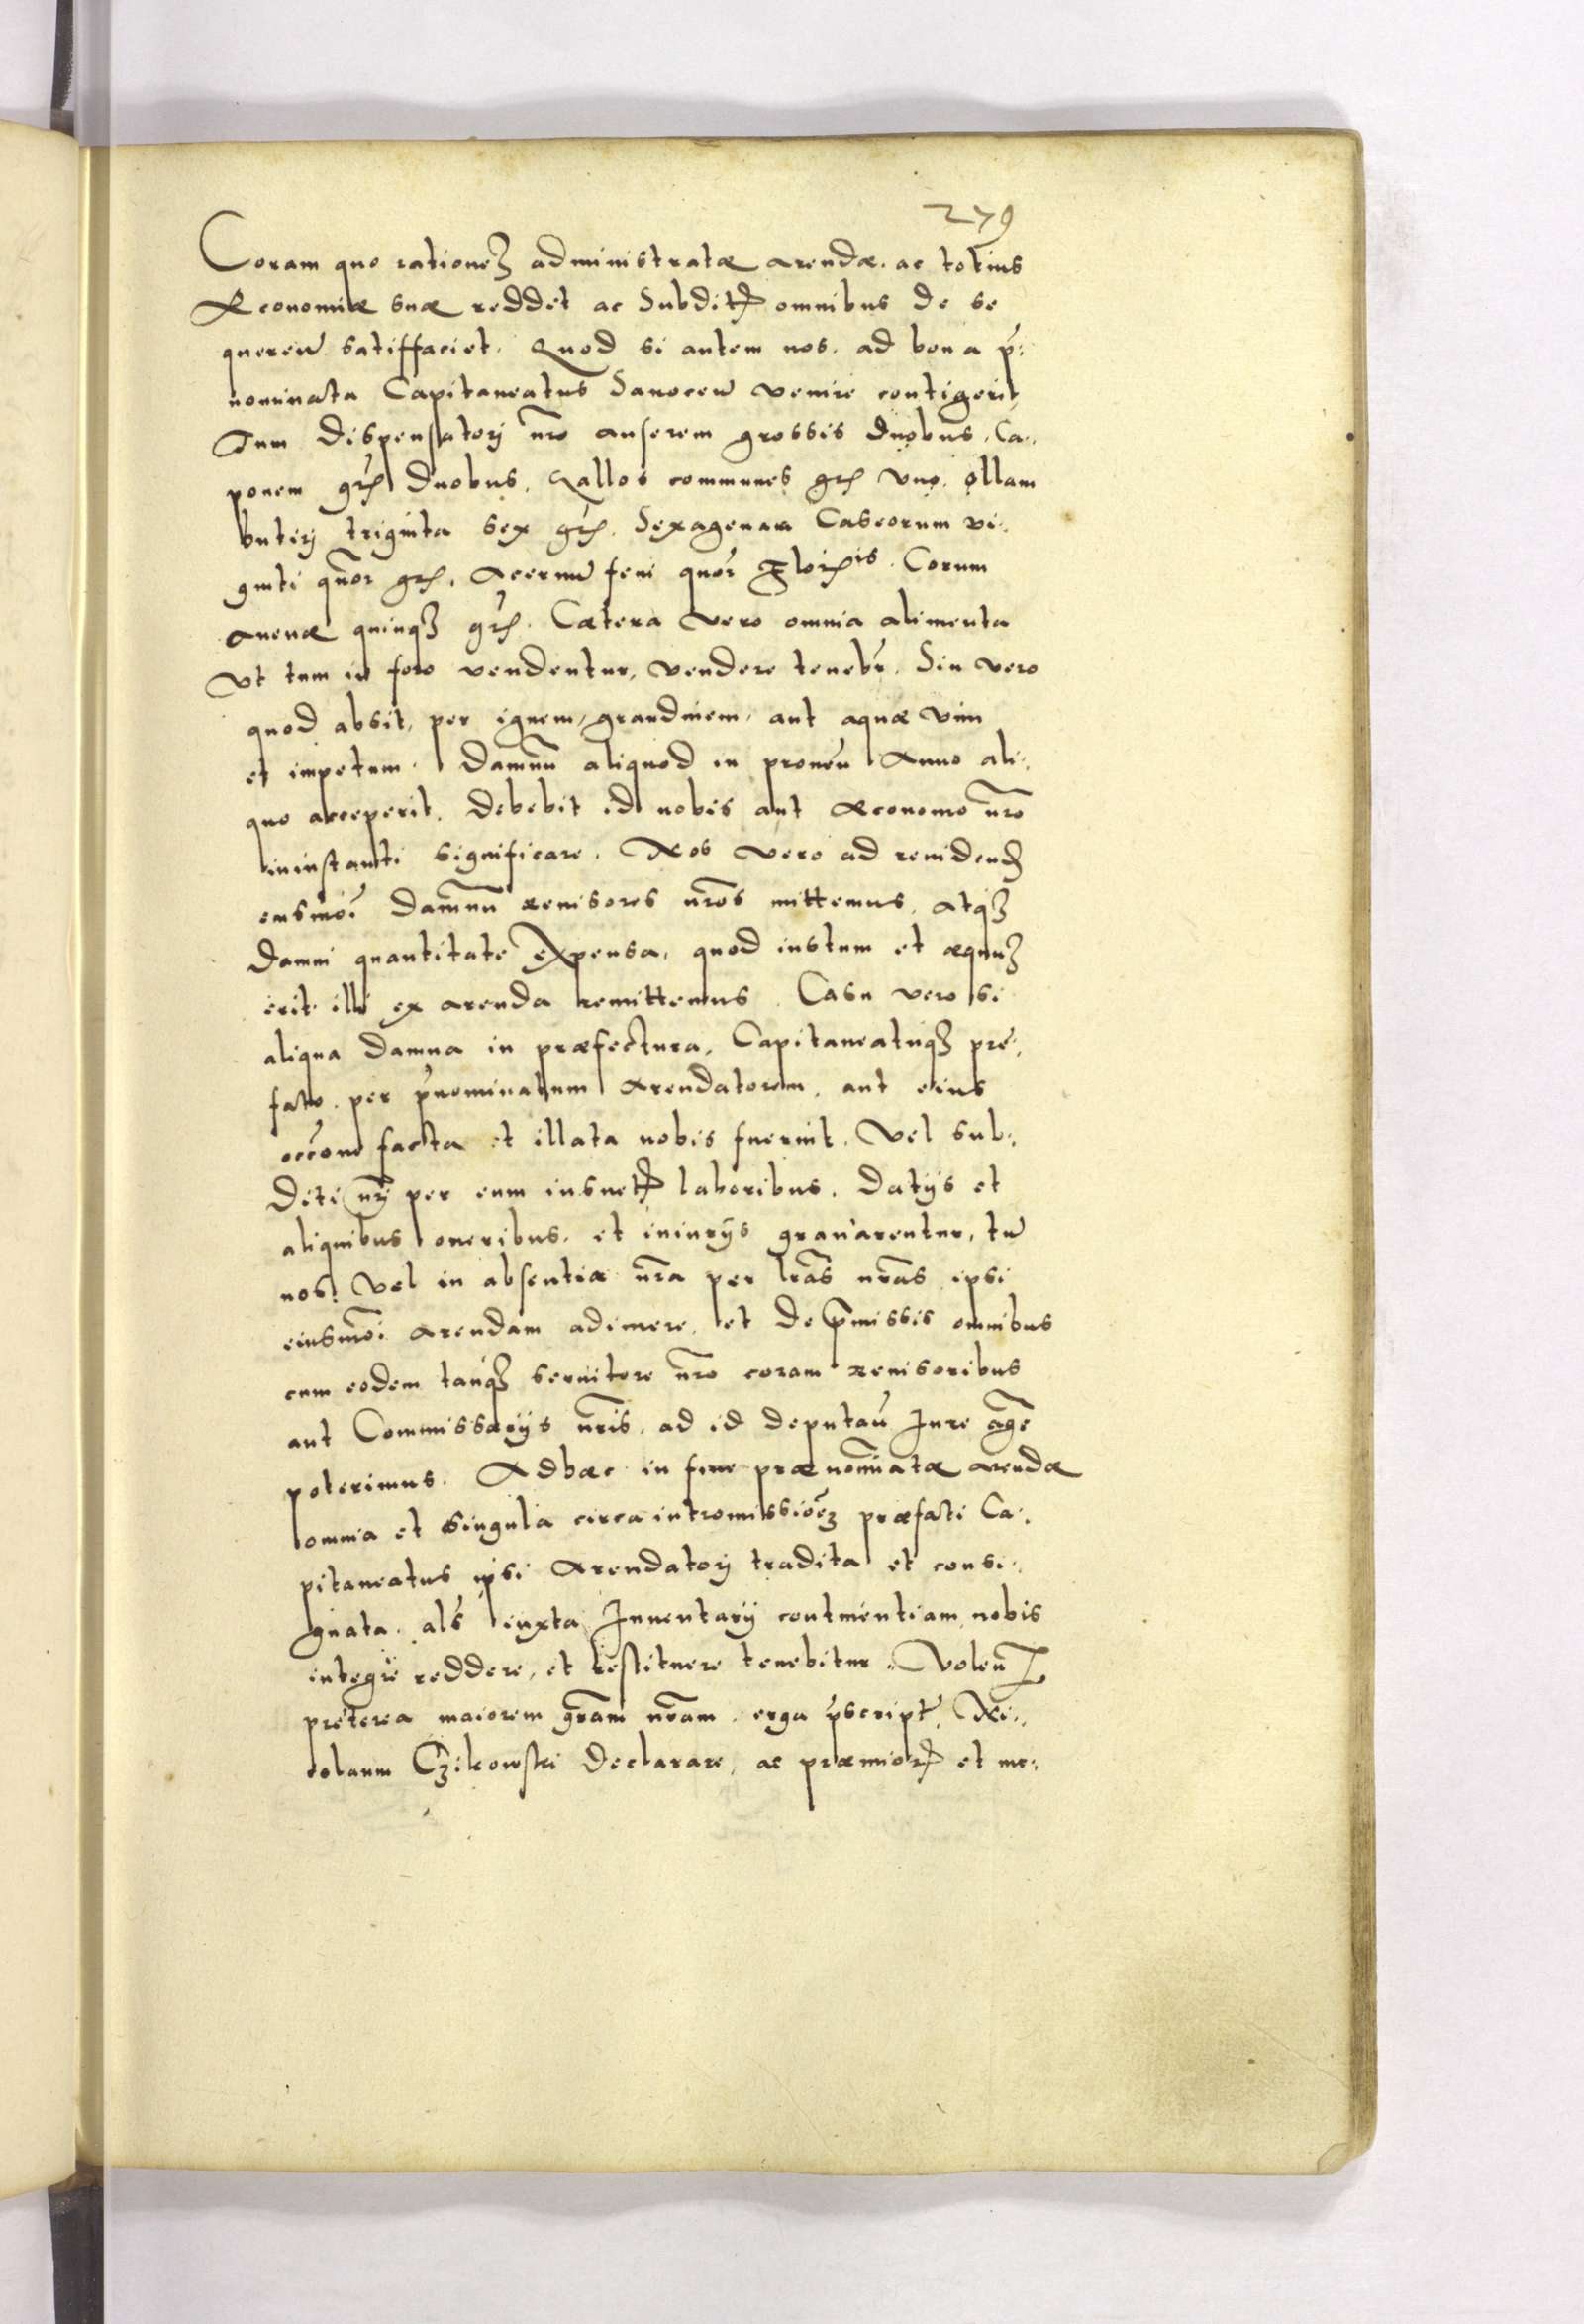 279
Coram quo rationeȝ administratæ arendæ. ac totius
Æconomiæ suæ reddet ac Subditꝭ omnibus de se
queren̄ satiffaciet. Quod si autem nos. ad bona p̄:
nominata Capitaneatus Sanocen̄ venire contigerit,
Tum dispensatorj n̄ro anserem grossis duobus. Ca:
ponem gr̄ꝭ duobus. Gallos communes grꝭ vno. ollam
butirj triginta sex gr̄ꝭ. Sexagenam Caseorum vi:
ginti qūor grꝭ. Aceruū feni quōr Corum
auenæ quinqȝ gr̄ꝭ. Cætera vero omnia alimenta
vt tum in foro vendentur, vendere tenebr̄. Sin vero
quod absit, per ignem, grandinem, aut aquæ vim
et impetum. Damnū aliquod in prouen̄ Anno ali:
quo acceperit. debebit id nobis aut æconomo n̄ro
ininstanti significare. Nos vero ad reuidendꝭ
eiusmōi damnū reuisores n̄ros mittemus. atqȝ
damni quantitate expensa, quod iustum et æquuȝ
erit illi ex arenda remittemus. Casu vero si
aliqua damna in præfectura, Capitaneatuqȝ præ:
fato. per p̄nominatum Arendatorem. aut eius
occ̄one facta et illata nobis fuerint. Vel sub:
diti n̄rj per eum insuetꝭ laboribus. datijs et
aliquibus oneribus. et iniurijs grauarentur, tū
nos. Vel in absentia n̄ra per lr̄as n̄ras ipsi
eiusmōi arendam adimere. et de p̄missis omnibus
cum eodem tanqȝ seruitore n̄ro coram reuisoribus
aut Commissarijs n̄ris. ad id deputan̄ Jure agē
poterimus. Adhæc in fine prænomīatæ arendæ
omnia et singula circa intromissiōeȝ præfati Ca:
pitaneatus ipsi Arendatorj tradita et consi:
gnata. als̄ iuxta Inuentarij continentiam nobis
integrē reddere, et restituere tenebitur. Volen̄
preterea maiorem gr̄am n̄ram. erga p̄script̄. Ni:
colaum Czikowski declarare, ac præmiorꝭ et me: